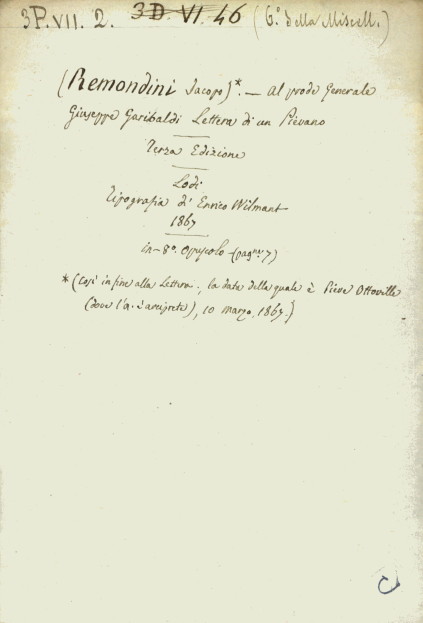 3P.VII. 2. 3D. VI. 46 (6.º della Miscell.)
(Remondini Jacopo)*. — Al prode Generale
Giuseppe Garibaldi Lettera di un Pievano
Terza Edizione
Lodi
Tipografia di Enrico Wilmant
1867
in-8º. Opuscolo (pagne 7)
* (Così in fine alla Lettera, la data della quale è Pieve Ottoville
(dove l'A. è arciprete), 10 marzo, 1867.)